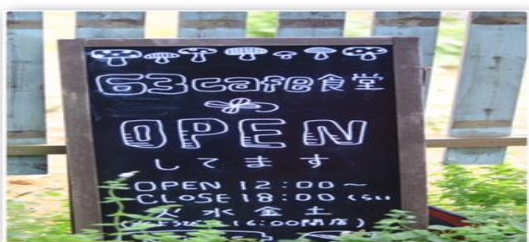 63cafe食堂
OPEN
してます
OPEN 12:00〜
CLOSE 18:00くらい
火水金土
16:00閉店)